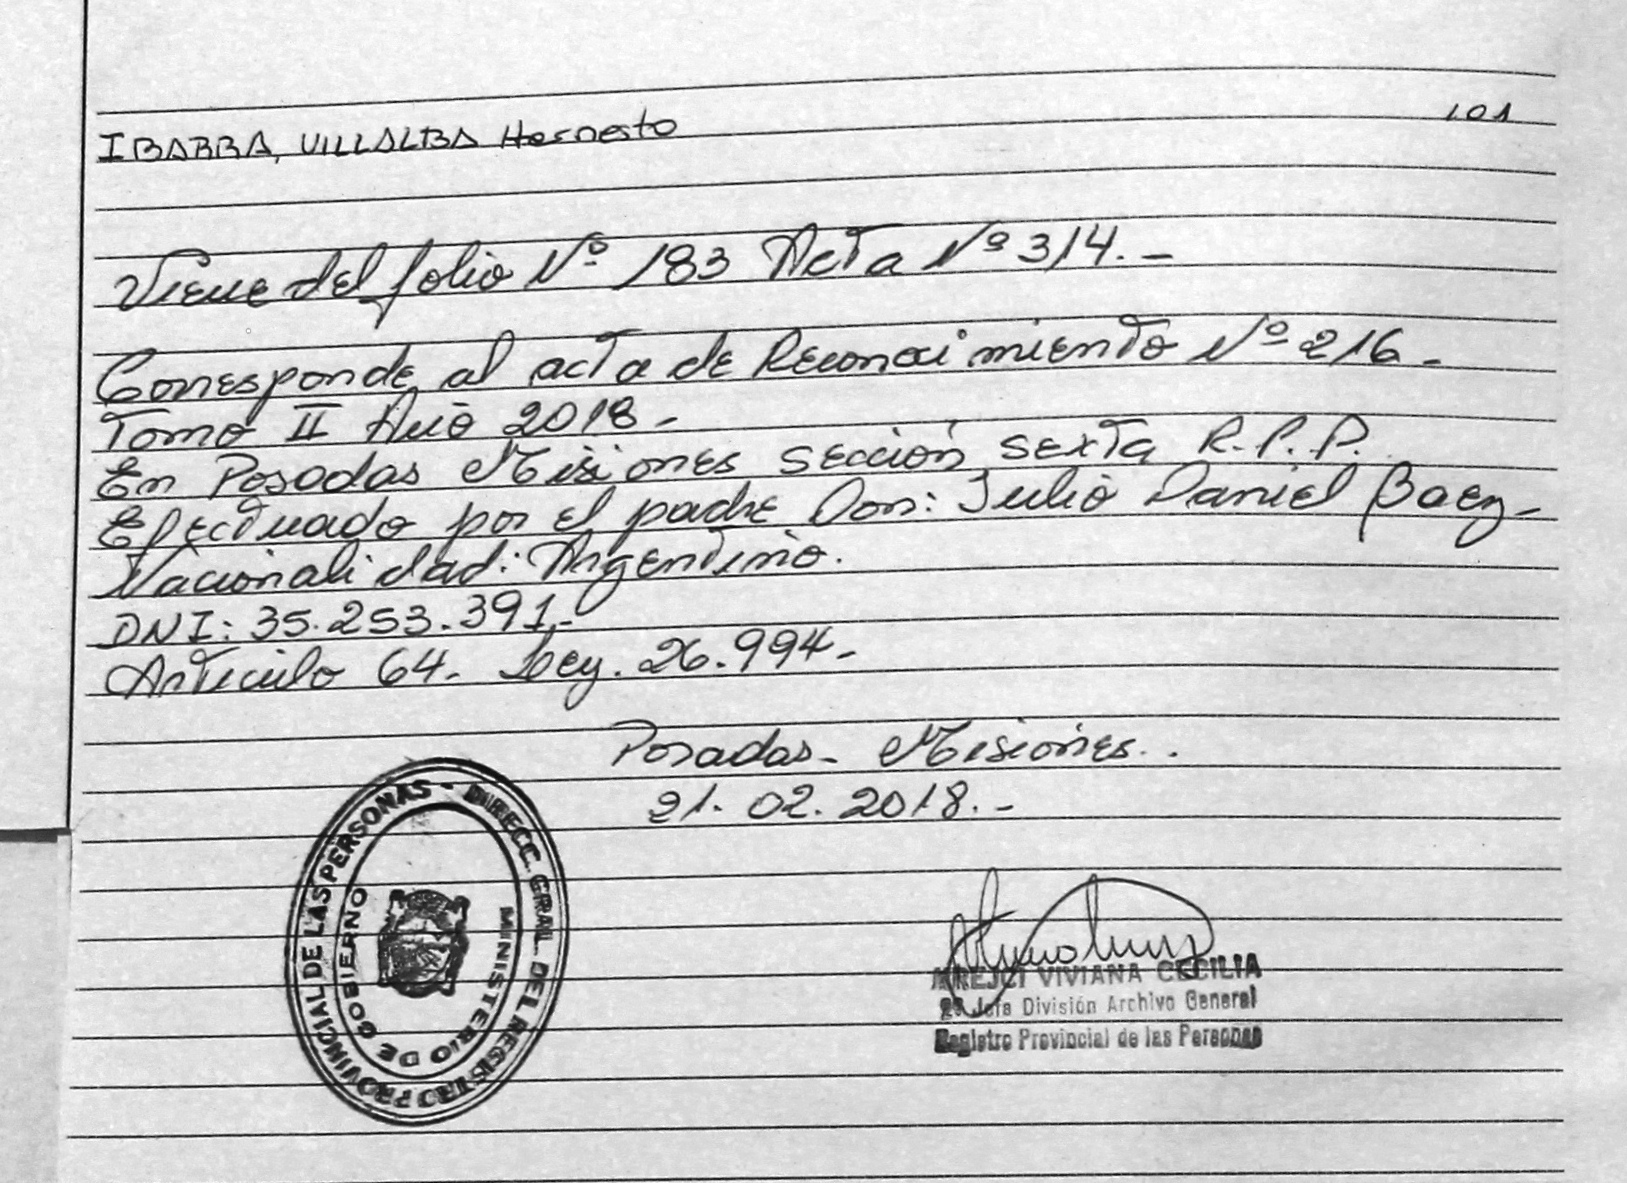 101
IBARRA, VILLALBA Hernesto
Viene del folio Nº 183 Acta Nº 314.-
Corresponde al acta de Reconocimiento Nº 216-
Tomo II Año 2018-
En Posadas Misiones sección sexta R.P.P.
Efectuado por el padre Don: Julio Daniel Baez-
Nacionalidad: Argentino.
DNI: 35.253.391.-
Artículo 64- Ley. 26.994-
Posadas- Misiones..
21.02.2018.-
DIRECC. GRAL. DEL REGISTRO PROVINCIAL DE LAS PERSONAS -
MINISTERIO DE GOBIERNO
VIVIANA CECILIA
Jefa División Archivo General
Registro Provincial de las Personas